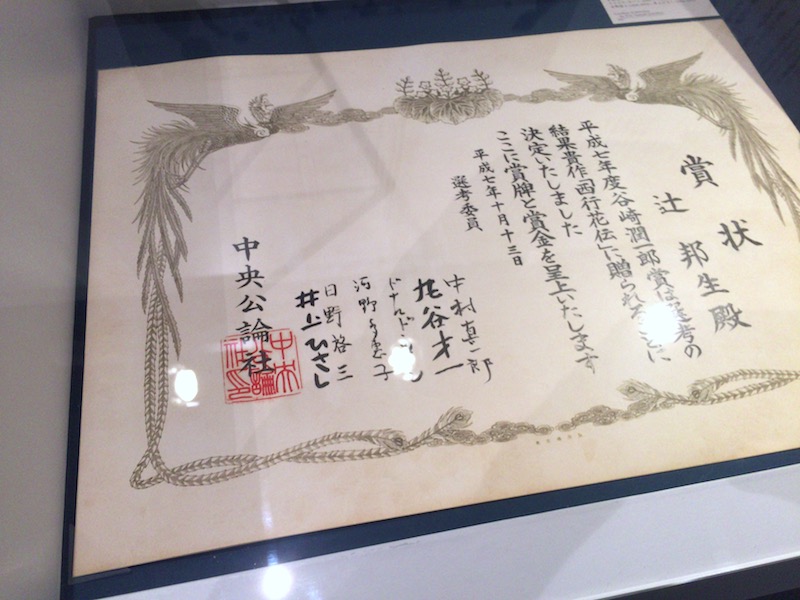 賞状
辻 邦生殿
平成七年度谷崎潤一郎賞は選考の
結果貴作「西行花伝」に贈られることに
決定いたしました
ここに賞牌と賞金を呈上いたします
平成七年十月十三日
選考委員
中村真一郎
丸谷才一
ドナルド
河野多恵子
日野啓三
井上ひさし
中央公論社